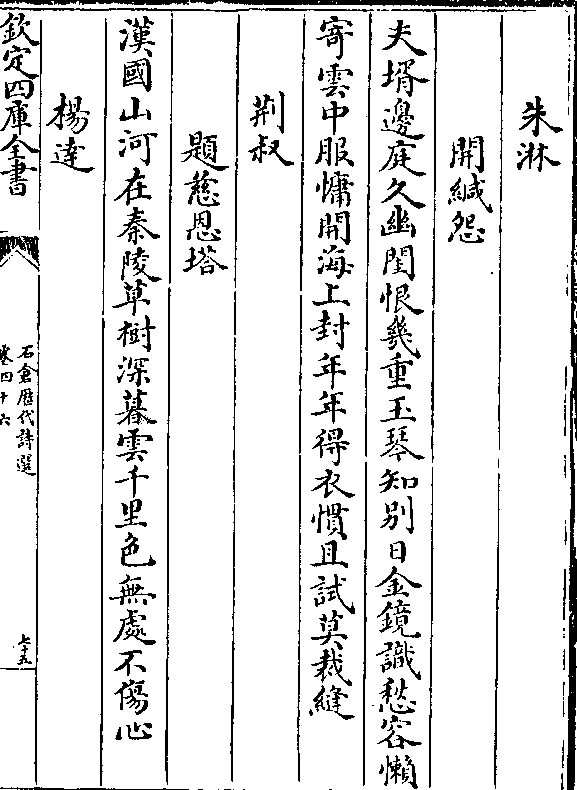 朱淋
開緘怨
夫壻邊庭久幽閨恨幾重玉琴知別日金鏡識愁容懶
寄雲中服慵開海上封年年得衣慣且試莫裁縫
荆叔
題慈恩塔
漢國山河在秦陵草樹深暮雲千里色無處不傷心
楊達
欽定四庫全書
石倉歴代詩選
卷四十六
七十五